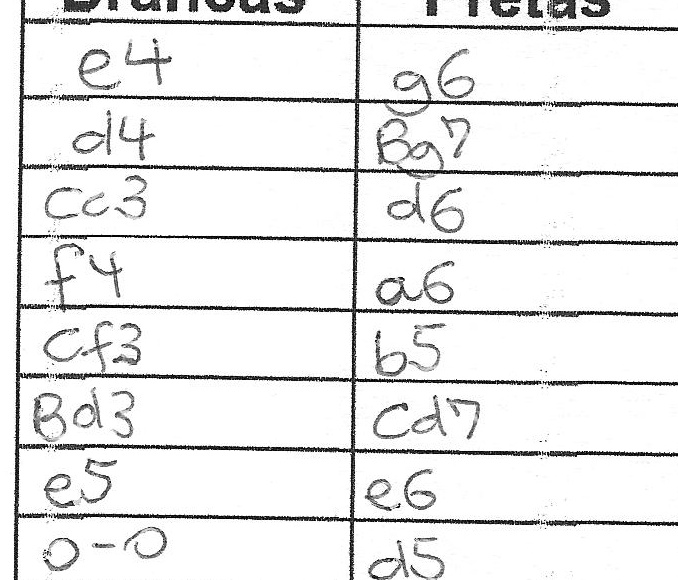 Brancas Pretas
e4 g6
d4 Bg7
Cc3 d6
f4 a6
Cf3 b5
Bd3 Cd7
e5 e6
0-0 d5